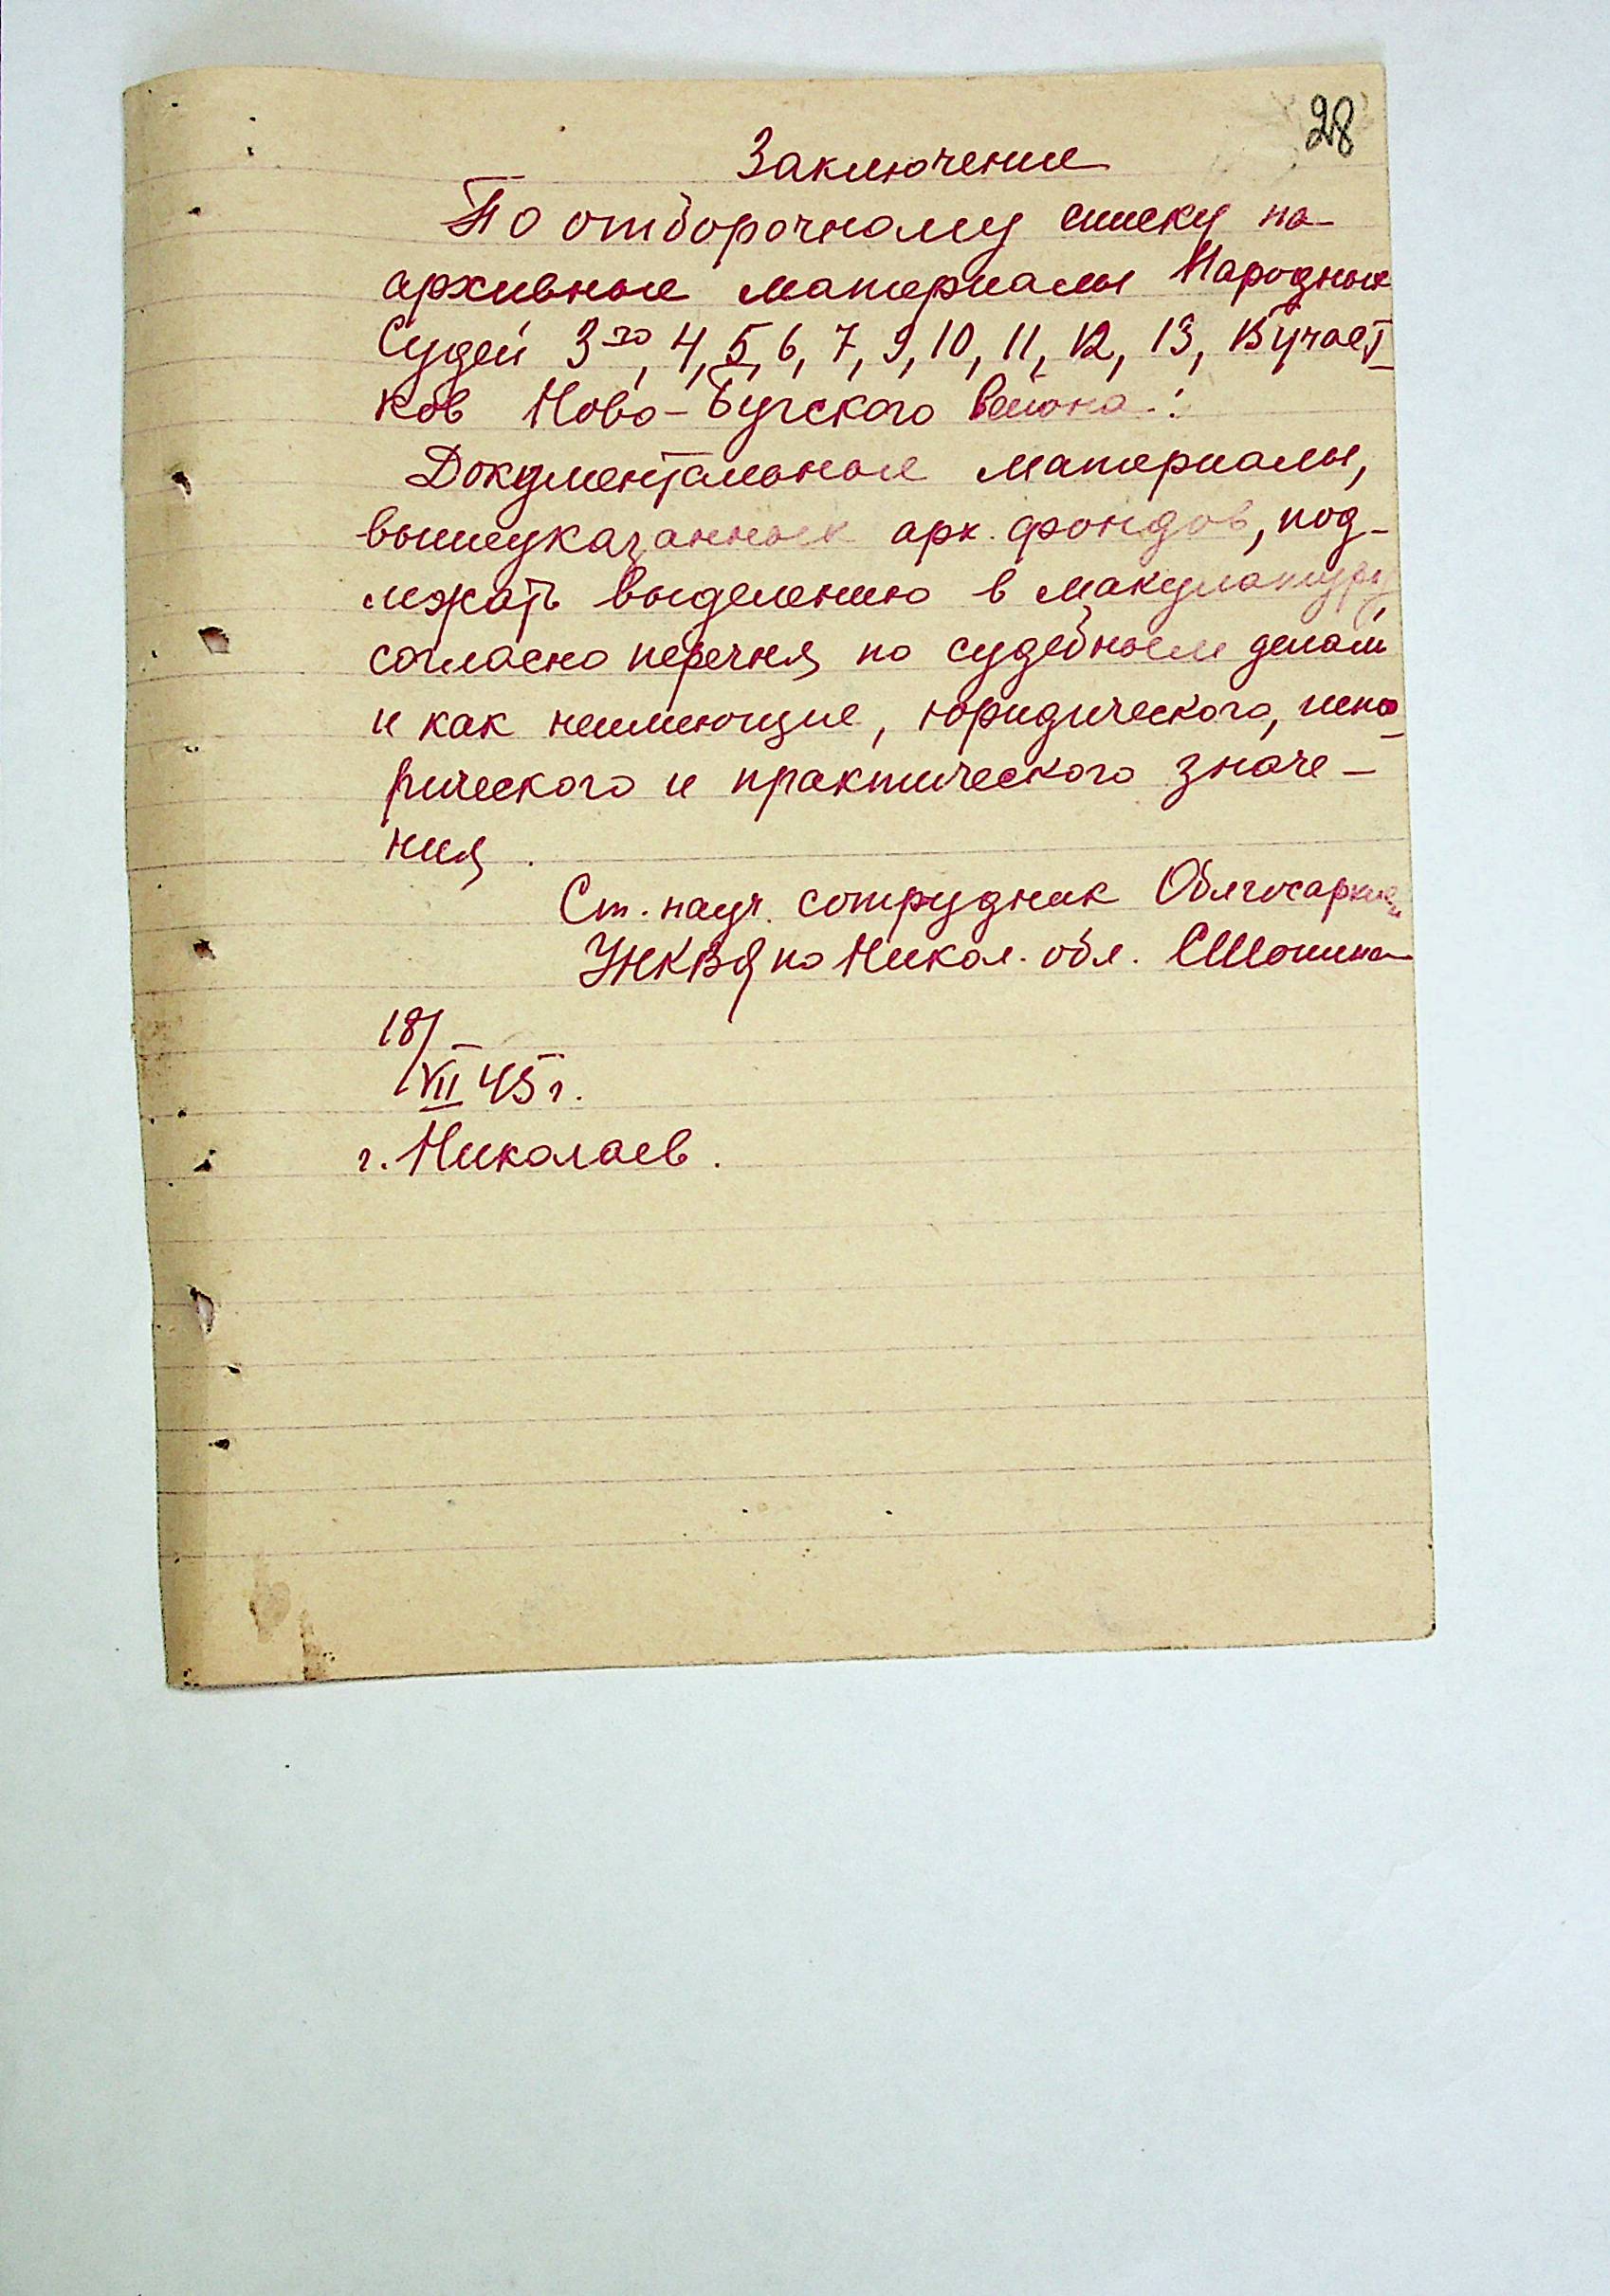 28
Заключение
По отборочному списку на
архивные материалы Народных
Судей 3го, 4, 5, 6, 7, 9, 10, 11, 12, 13, 15 участ-
ков Ново-Бугского района:
Документальные материалы,
вышеуказанных арх. фондов, под-
лежать выделению в макулатуру
согласно перечня по судебным делам
и как неимеющие, юридического, исто-
рического и практического значе-
ния.
Ст. науч. сотрудник Облгосархива
УНКВД по Никол. обл.
18/
VII 45 г.
г. Николаев.